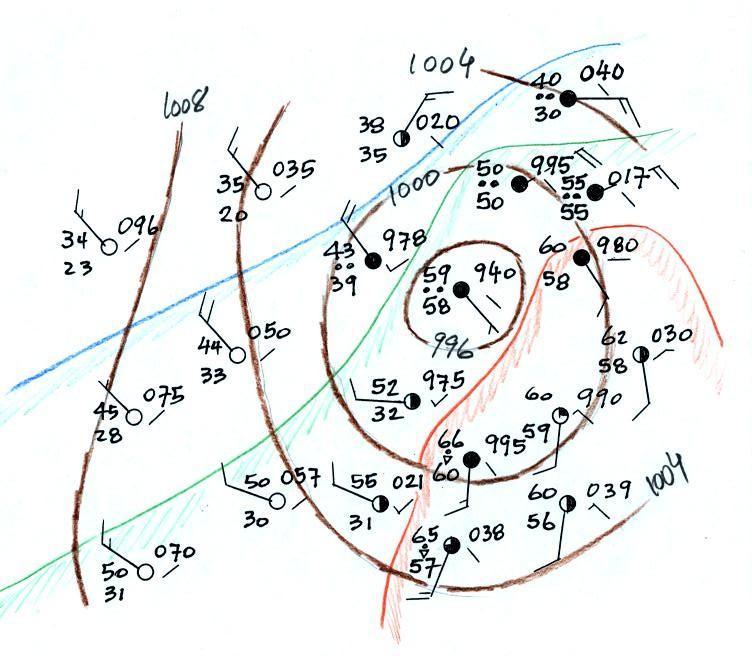 1004
40 040
30
1008
38 020
35
35 035
20
1000
50 995
50
55 017
55
34 096
23
43 978
39
59 940
58
60 980
58
996
44 050
33
62 030
58
45 075
28
52 975
32
60 990
59
66 995
60
50 057
30
55 021
31
60 039
56
1004
65 038
57
50 070
31